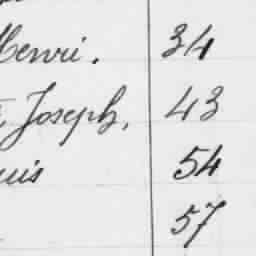 Henri. 34
Joseph, 43
uis 54
57